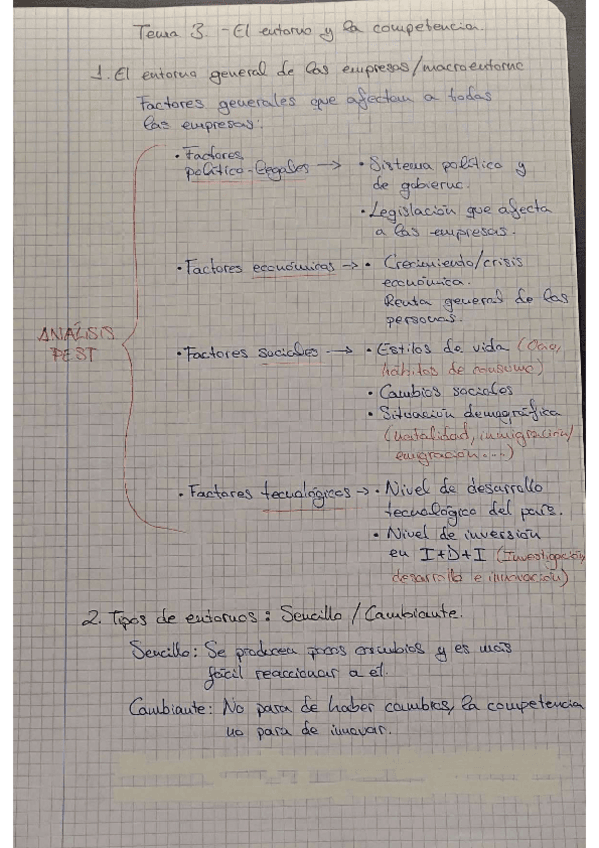 Tema 3. - El entorno y la competencia.
1. El entorno general de las empresas/macroentorno
Factores generales que afectan a todas
las empresas:
• Factores
político-legales → • Sistema político y
de gobierno.
• Legislación que afecta
a las empresas.
• Factores económicos → • Crecimiento/crisis
económica.
Renta general de las
personas.
ANÁLISIS
PEST
• Factores sociales → • Estilos de vida (Ocio,
hábitos de consumo)
• Cambios sociales
• Situación demográfica
(natalidad, inmigración/
emigración...)
• Factores tecnológicos → • Nivel de desarrollo
tecnológico del país.
• Nivel de inversión
en I+D+I (Investigación
desarrollo e innovación)
2. Tipos de entornos: Sencillo / Cambiante.
Sencillo: Se producen pocos cambios y es más
fácil reaccionar a él.
Cambiante: No para de haber cambios, la competencia
no para de innovar.